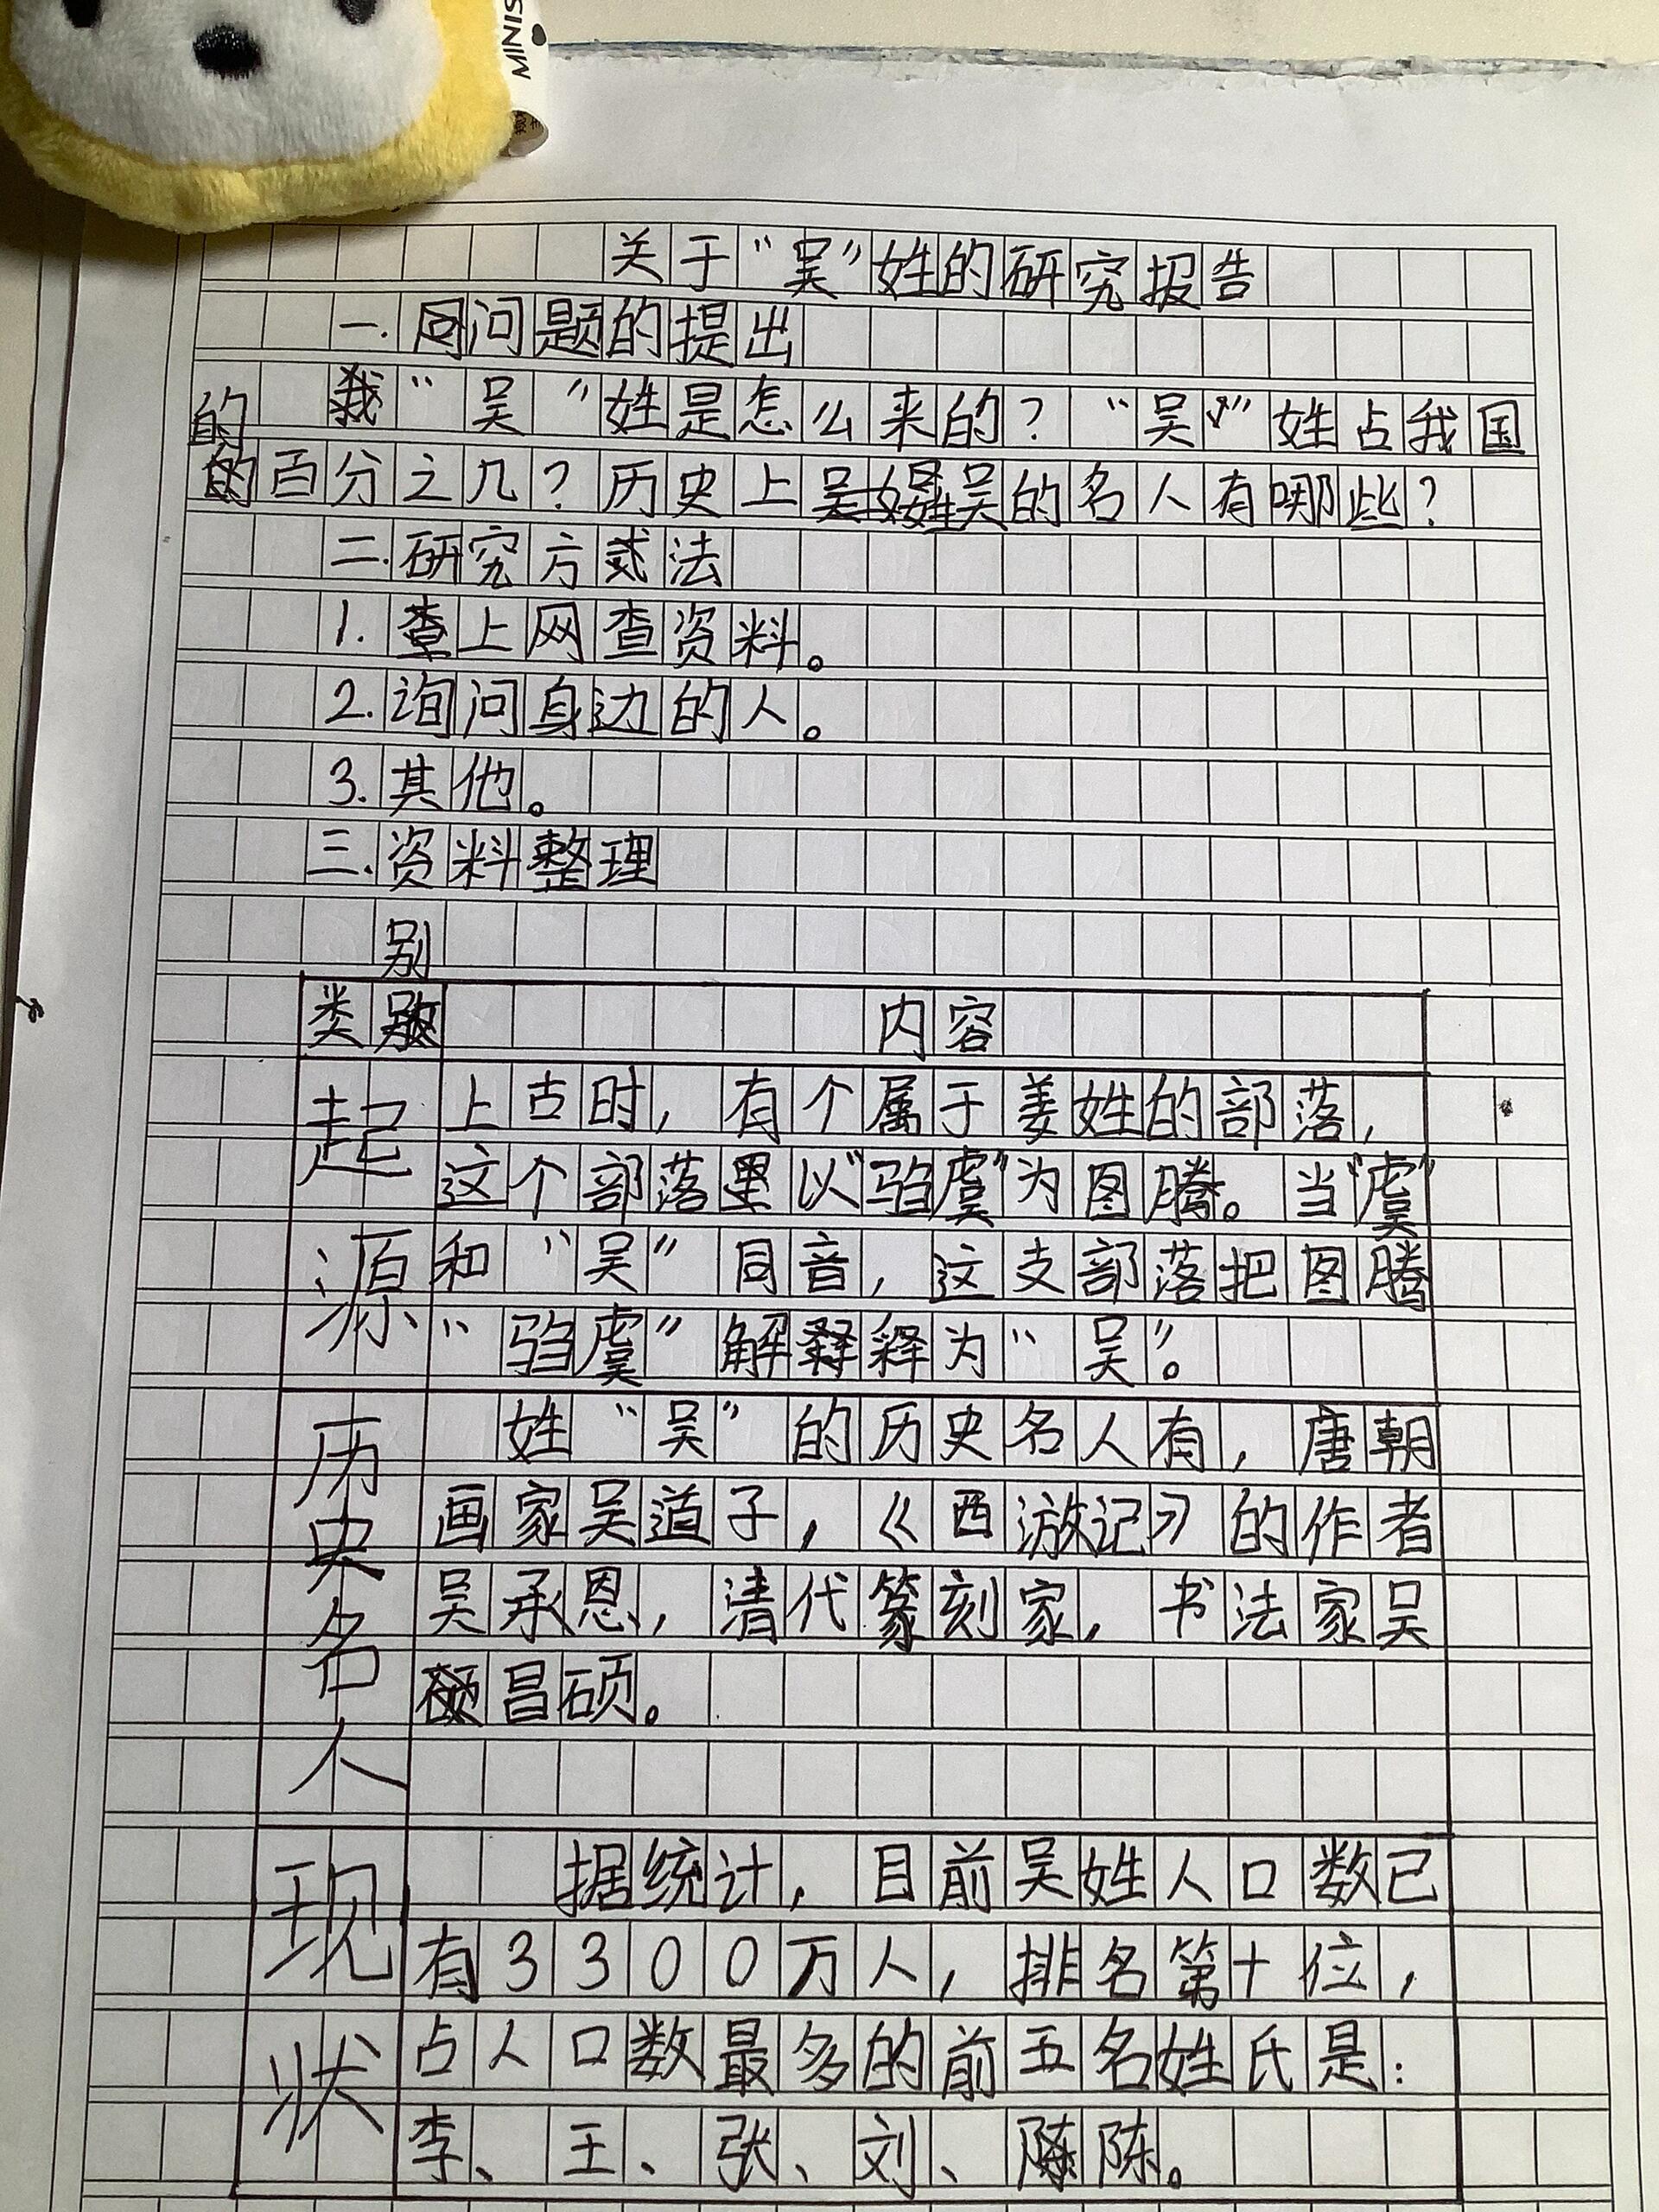 MINIS
关于“吴”姓的研究报告
一.问题的提出
我“吴”姓是怎么来的？“吴”姓占我国
的百分之几？历史上姓吴的名人有哪些？
二.研究方法
1.上网查资料。
2.询问身边的人。
3.其他。
三.资料整理
类别 内容
起源
上古时，有个属于姜姓的部落，
这个部落以“驺虞”为图腾。当“虞”
和“吴”同音，这支部落把图腾
“驺虞”解释为“吴”。
历史名人
姓“吴”的历史名人有，唐朝
画家吴道子，《西游记》的作者
吴承恩，清代篆刻家，书法家吴
昌硕。
现状
据统计，目前吴姓人口数已
有3300万人，排名第十位，
占人口数最多的前五名姓氏是：
李、王、张、刘、陈。